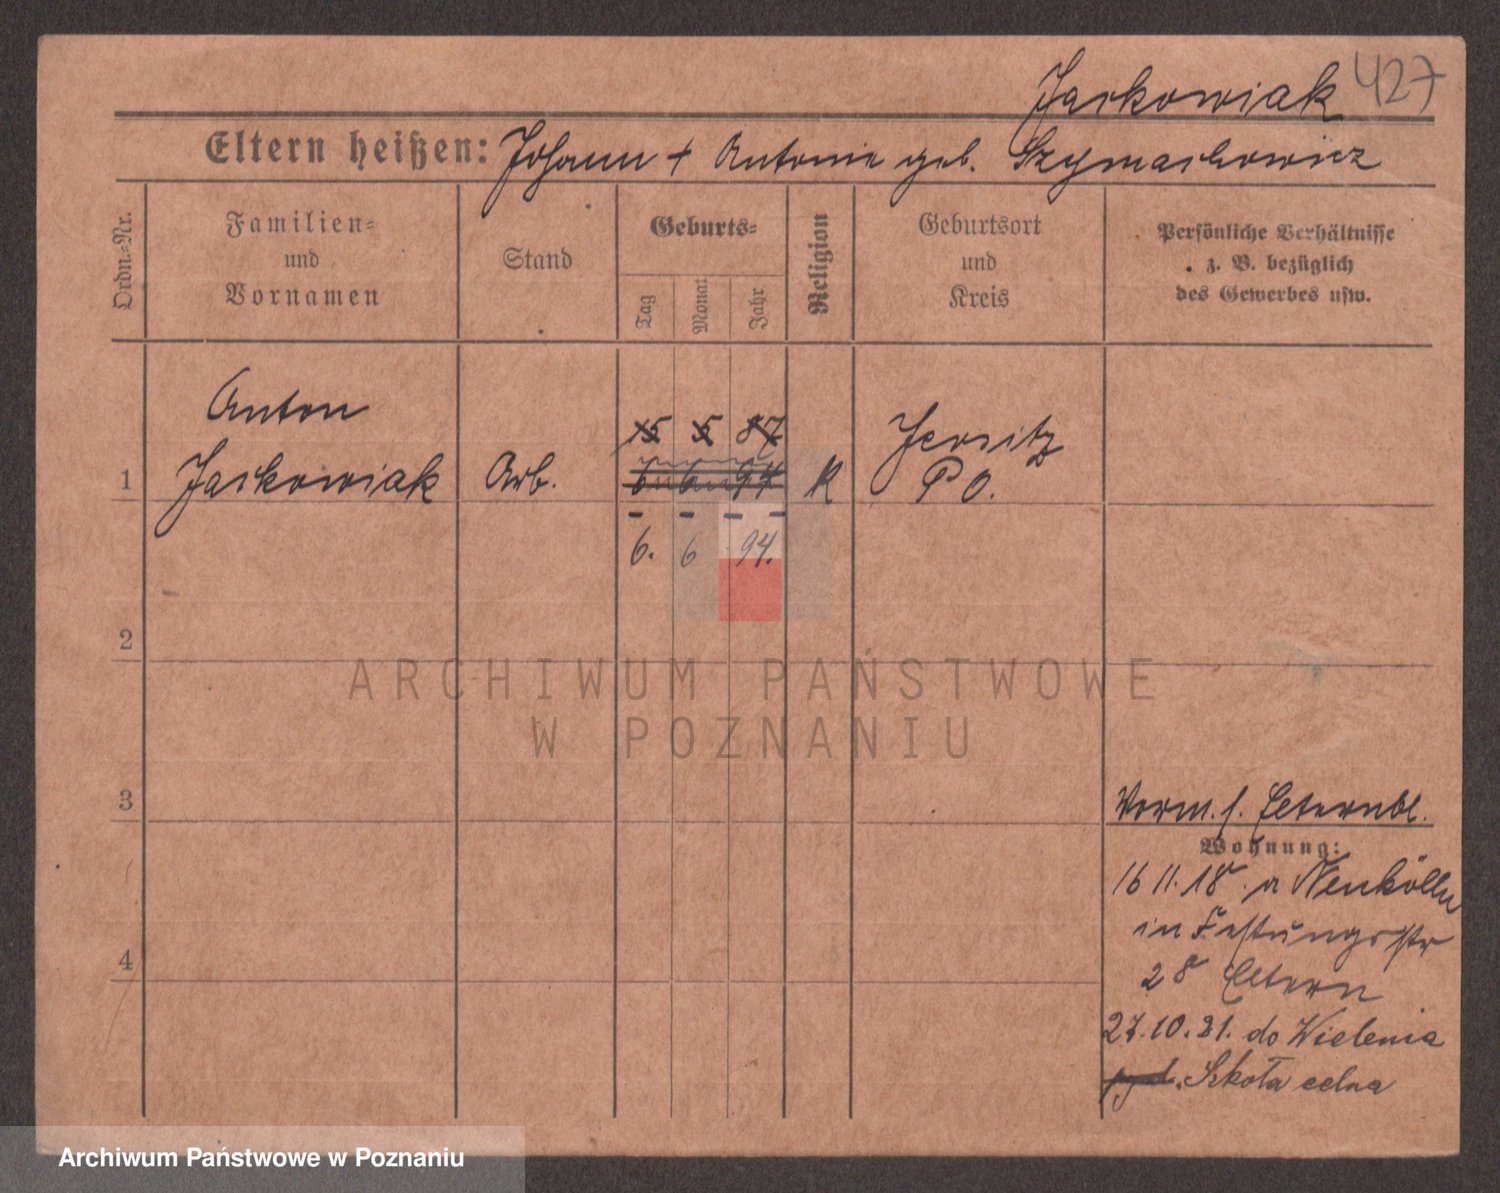 Jaskowiak 427
Eltern heißen: Johann + Antonie geb. Szymaskowicz
Ordn.-Nr.
Familien-
und
Vornamen
Stand
Geburts-
Tag
Monat
Jahr
Religion
Geburtsort
und
Kreis
Persönliche Verhältnisse
z. B. bezüglich
des Gewerbes usw.
Anton
15 5 87
Jersitz
1 Jaskowiak Arb. 6 6 94 K P O.
6. 6 94.
2
ARCHIWUM PAŃSTWOWE
W POZNANIU
3
Vorm. s. Elternbl.
Wohnung:
16 11. 18. a Neukölln
in Festungsstr
28 Eltern
4
27.10.21. do Wielenia
Szkoła celna
Archiwum Państwowe w Poznaniu